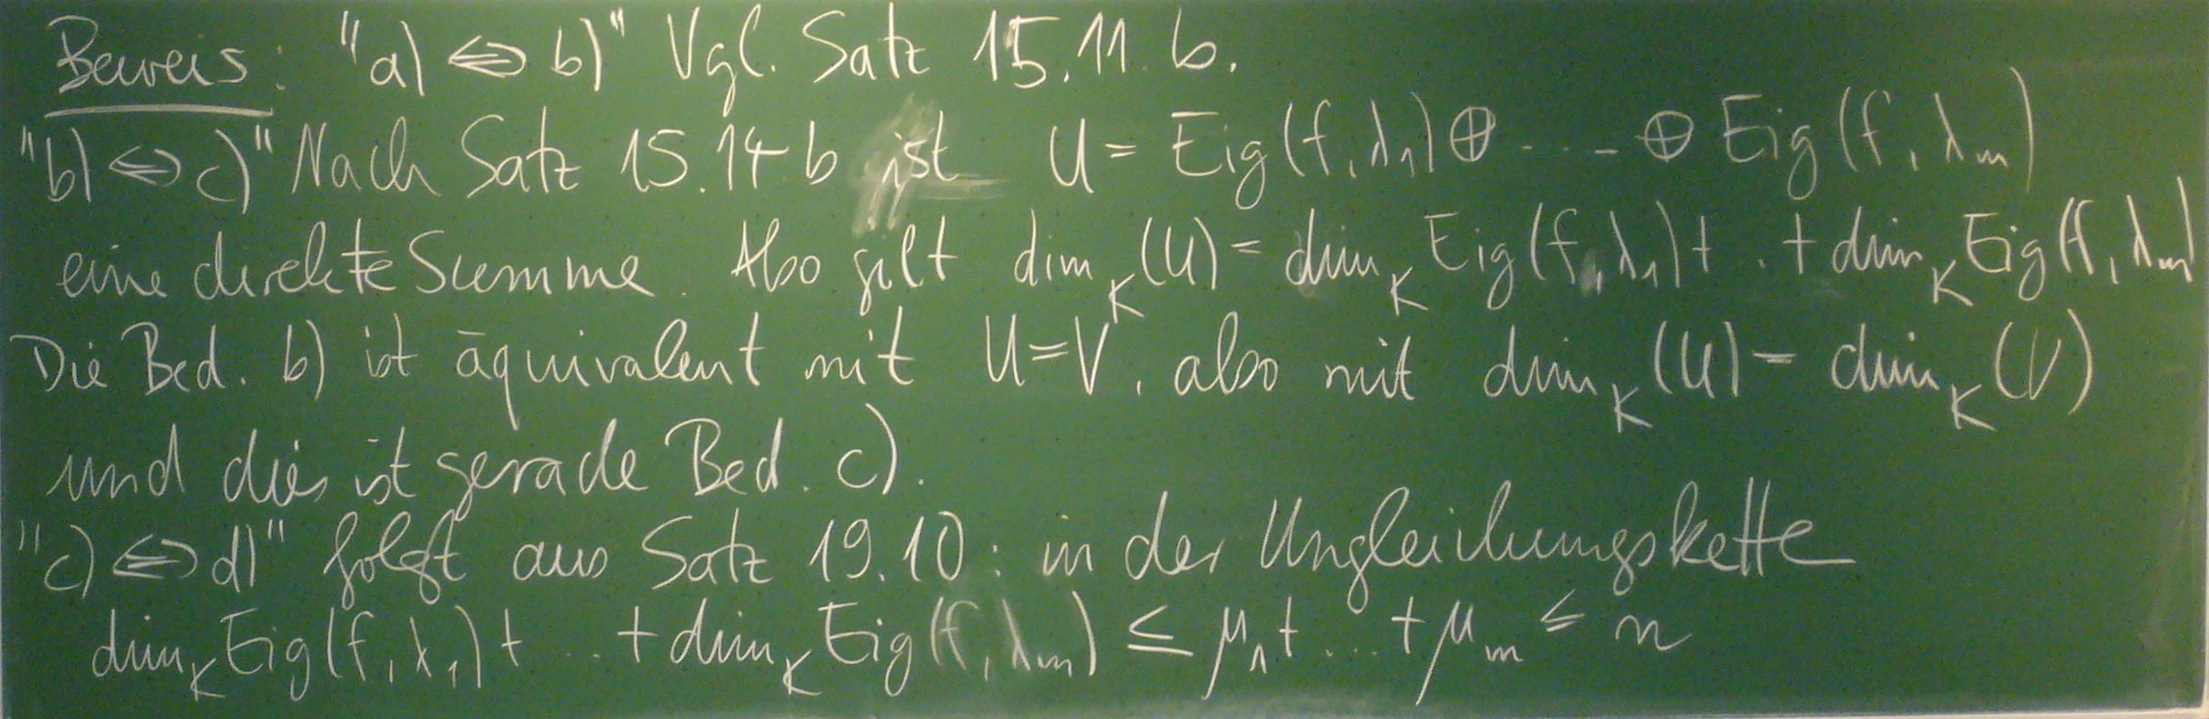 Beweis: "a) ⇔ b)" Vgl. Satz 15.11.b.
"b) ⇔ c)" Nach Satz 15.14 b ist U = Eig(f, λ₁) ⊕ ... ⊕ Eig(f, λₘ)
eine direkte Summe. Also gilt dim_K(U) = dim_K Eig(f, λ₁) + .. + dim_K Eig(f, λₘ)
Die Bed. b) ist äquivalent mit U=V, also mit dim_K(U) = dim_K(V)
und dies ist gerade Bed. c).
"c) ⇔ d)" folgt aus Satz 19.10: in der Ungleichungskette
dim_K Eig(f, λ₁) + ... + dim_K Eig(f, λₘ) ≤ μ₁ + ... + μₘ ≤ n